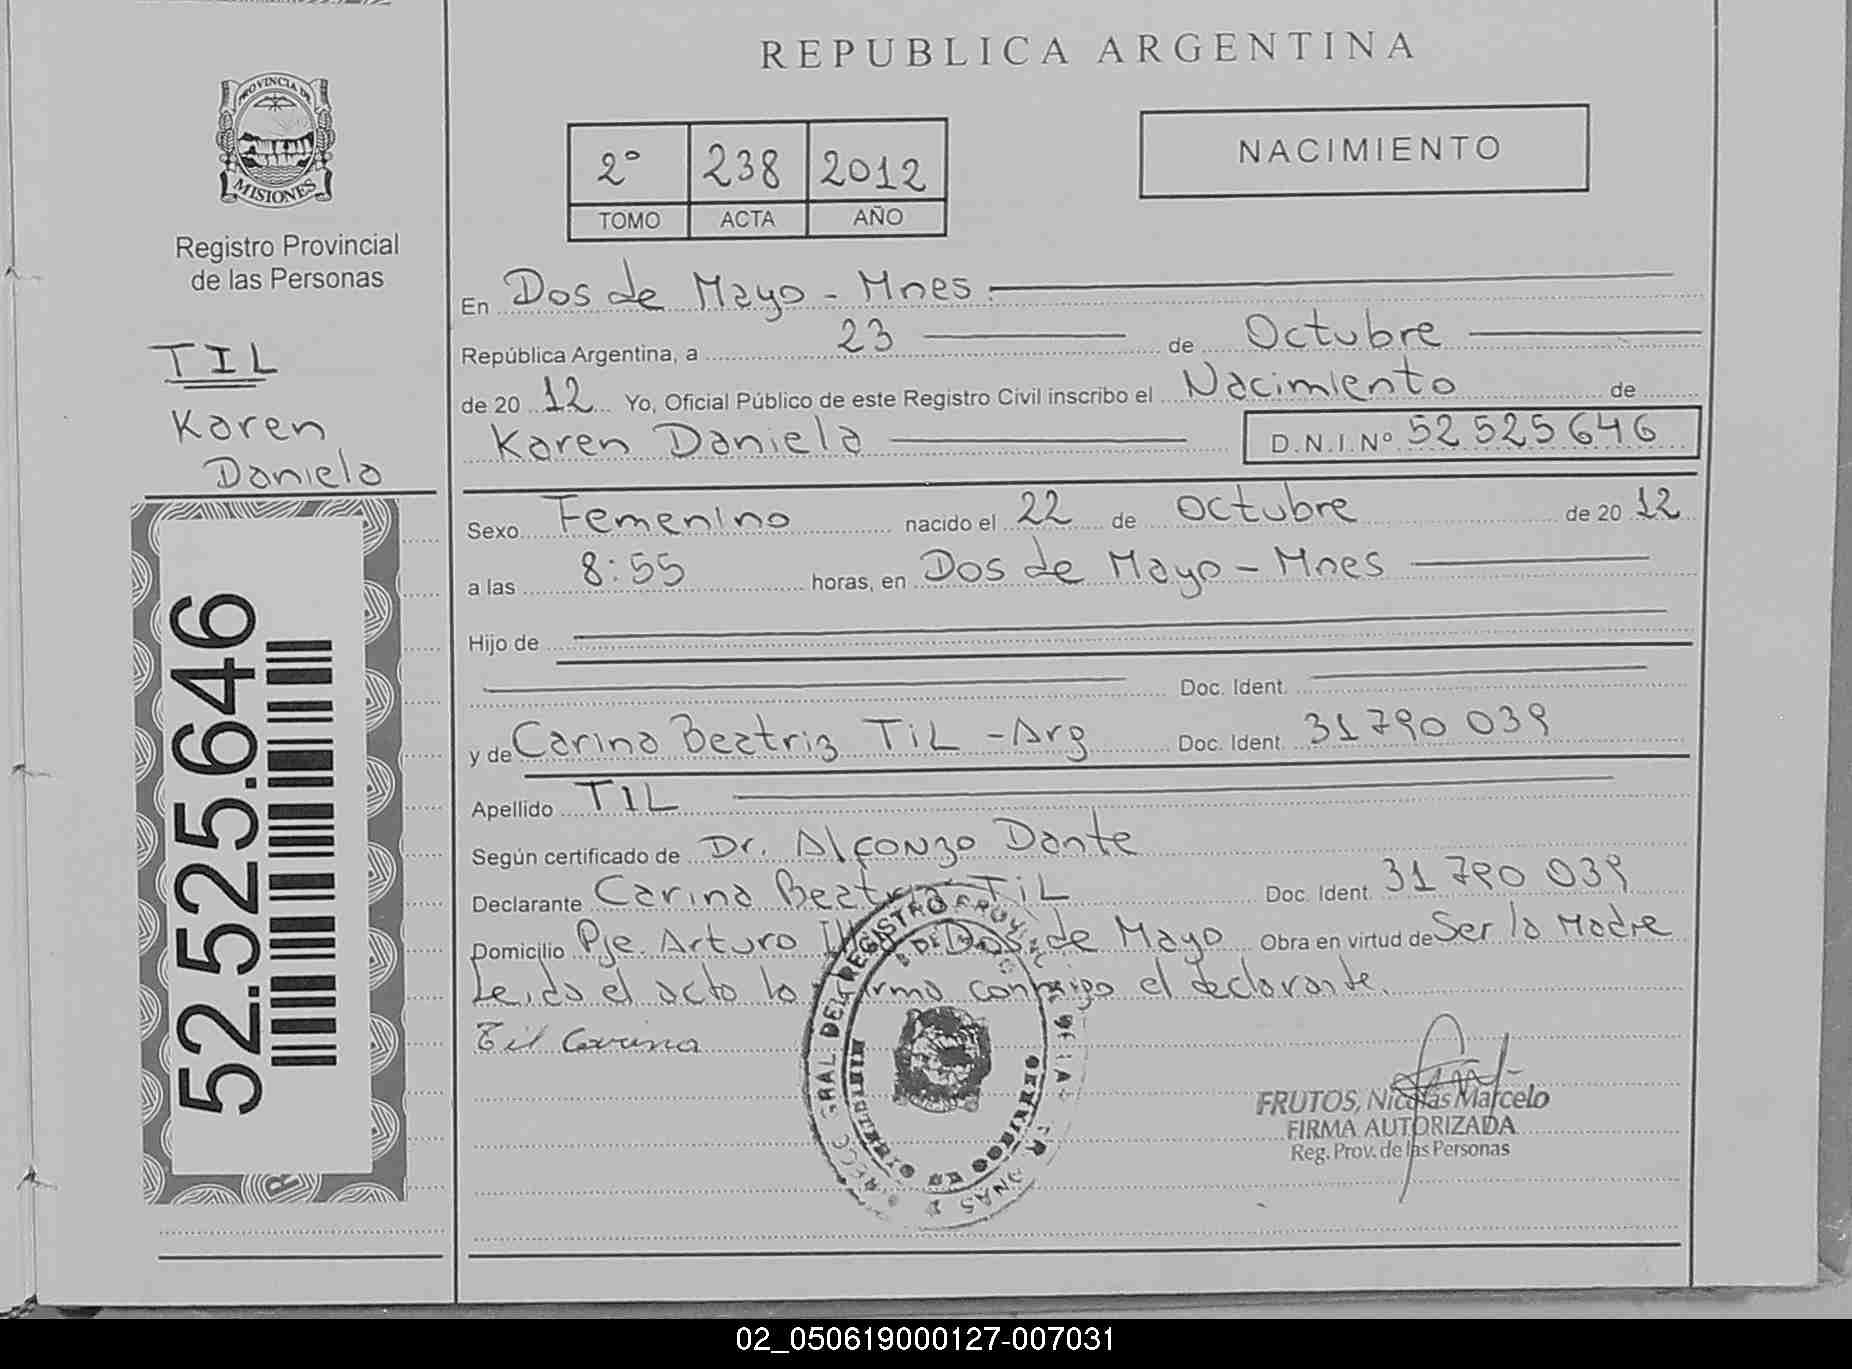 REPUBLICA ARGENTINA
PROVINCIA DE
MISIONES
Registro Provincial
de las Personas
TIL
Karen
Daniela
52.525.646
2° 238 2012
TOMO ACTA AÑO
NACIMIENTO
En Dos de Mayo - Mnes.
República Argentina, a 23 de Octubre
de 20 12 Yo, Oficial Público de este Registro Civil inscribo el Nacimiento de
Karen Daniela D.N.I.Nº 52 525 646
Sexo Femenino nacido el 22 de octubre de 20 12
a las 8:55 horas, en Dos de Mayo - Mnes
Hijo de
Doc. Ident.
y de Carina Beatriz TiL - Arg Doc. Ident. 31 790 039
Apellido TIL
Según certificado de Dr. Alfonzo Dante
Declarante Carina Beatriz TiL Doc. Ident. 31 790 039
Domicilio Pje. Arturo Dos de Mayo Obra en virtud de Ser la Madre
Leida el acta la firma conmigo el declarante.
Til Carina
FRUTOS, Nicolás Marcelo
FIRMA AUTORIZADA
Reg. Prov. de las Personas
02_050619000127-007031